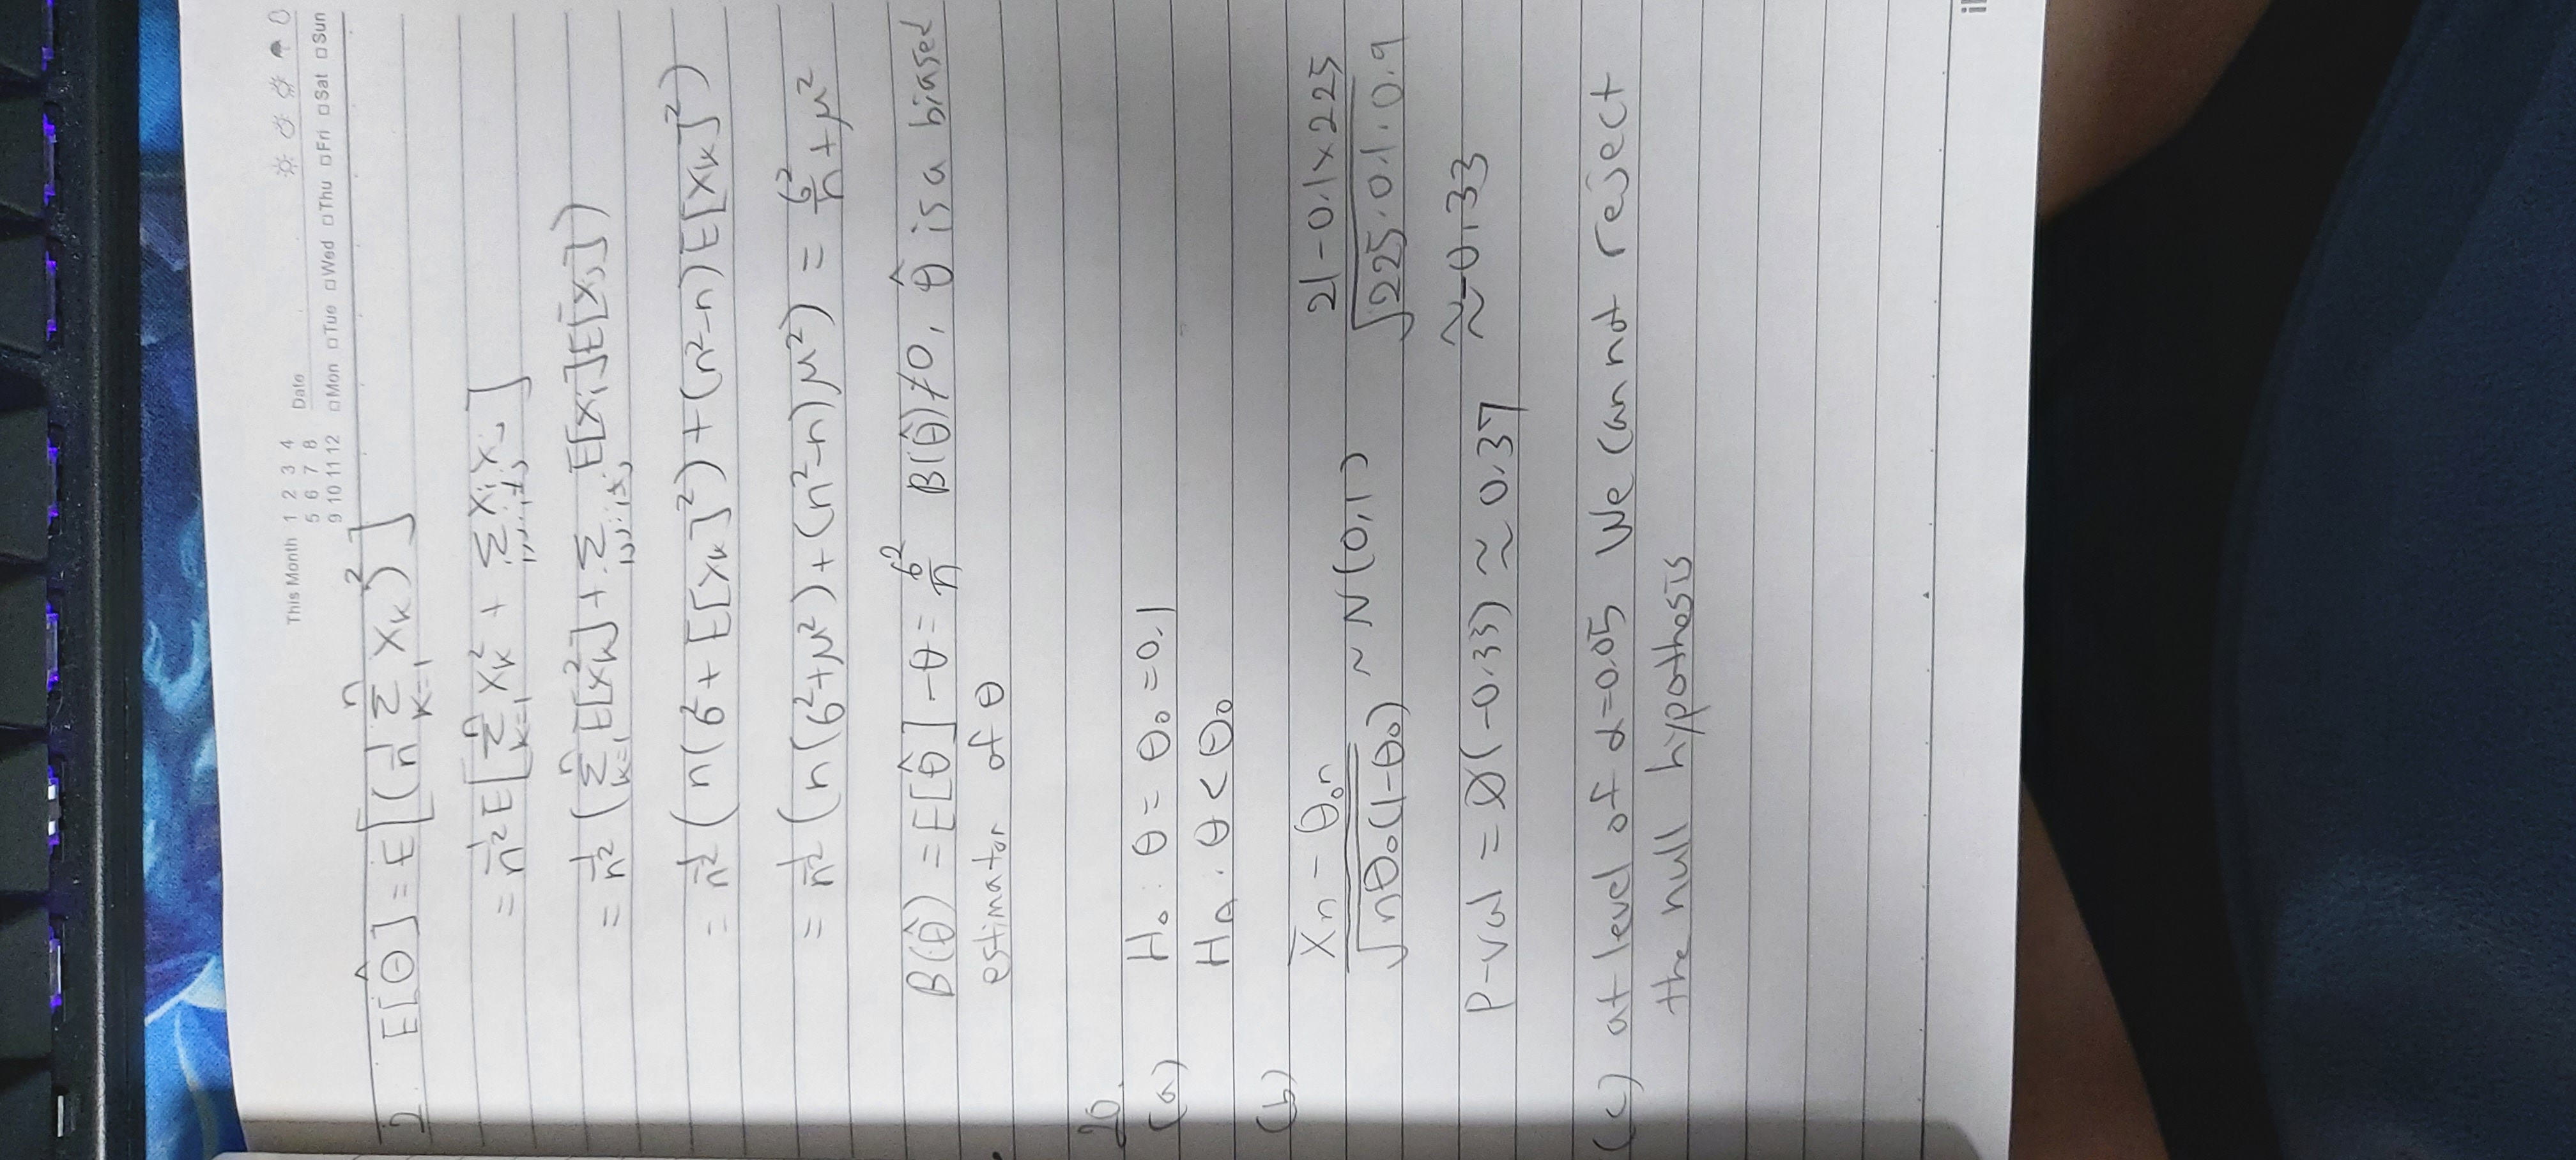 This Month 1 2 3 4
5 6 7 8
9 10 11 12
Date
□Mon □Tue □Wed □Thu □Fri □Sat □Sun
2. E[θ̂] = E[(1/n Σ_{k=1}^{n} X_k)²]
= 1/n² E[Σ_{k=1}^{n} X_k² + Σ_{i,j: i≠j} X_i X_j]
= 1/n² (Σ_{k=1}^{n} E[X_k²] + Σ_{i,j: i≠j} E[X_i]E[X_j])
= 1/n² (n(σ² + E[X_k]²) + (n²-n)E[X_k]²)
= 1/n² (n(σ²+μ²) + (n²-n)μ²) = σ²/n + μ²
B(θ̂) = E[θ̂] - θ = σ²/n B(θ̂)≠0, θ̂ is a biased
estimator of θ
20.
(a) H₀: θ = θ₀ = 0.1
H_A: θ < θ₀
(b)
(X̄n - θ₀n)/√(nθ₀(1-θ₀)) ~ N(0,1) (21 - 0.1×225)/√(225·0.1·0.9)
≈ -0.33
P-val = Φ(-0.33) ≈ 0.37
(c) at level of α=0.05 We can not reject
the null hypothesis